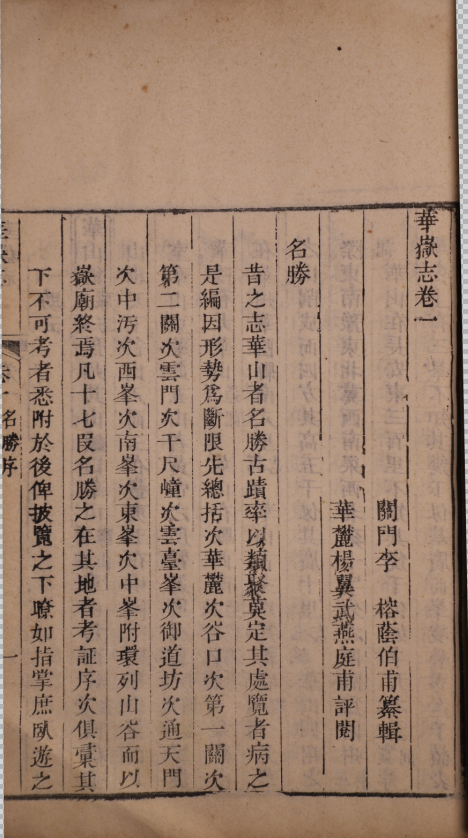 華嶽志卷一
關門李　榕蔭伯甫纂輯
華麓楊翼武燕庭甫評閱
名勝
昔之志華山者名勝古蹟率以類聚莫定其處覽者病之
是編因形勢為斷限先總括次華麓次谷口次第一關次
第二關次雲門次千尺㠉次雲臺峯次御道坊次通天門
次中汸次西峯次南峯次東峯次中峯附環列山峪而以
嶽廟終焉凡十七叚名勝之在其地者考証序次俱彙其
下不可考者悉附於後俾披覽之下瞭如指掌庶臥遊之
卷一名勝序
一